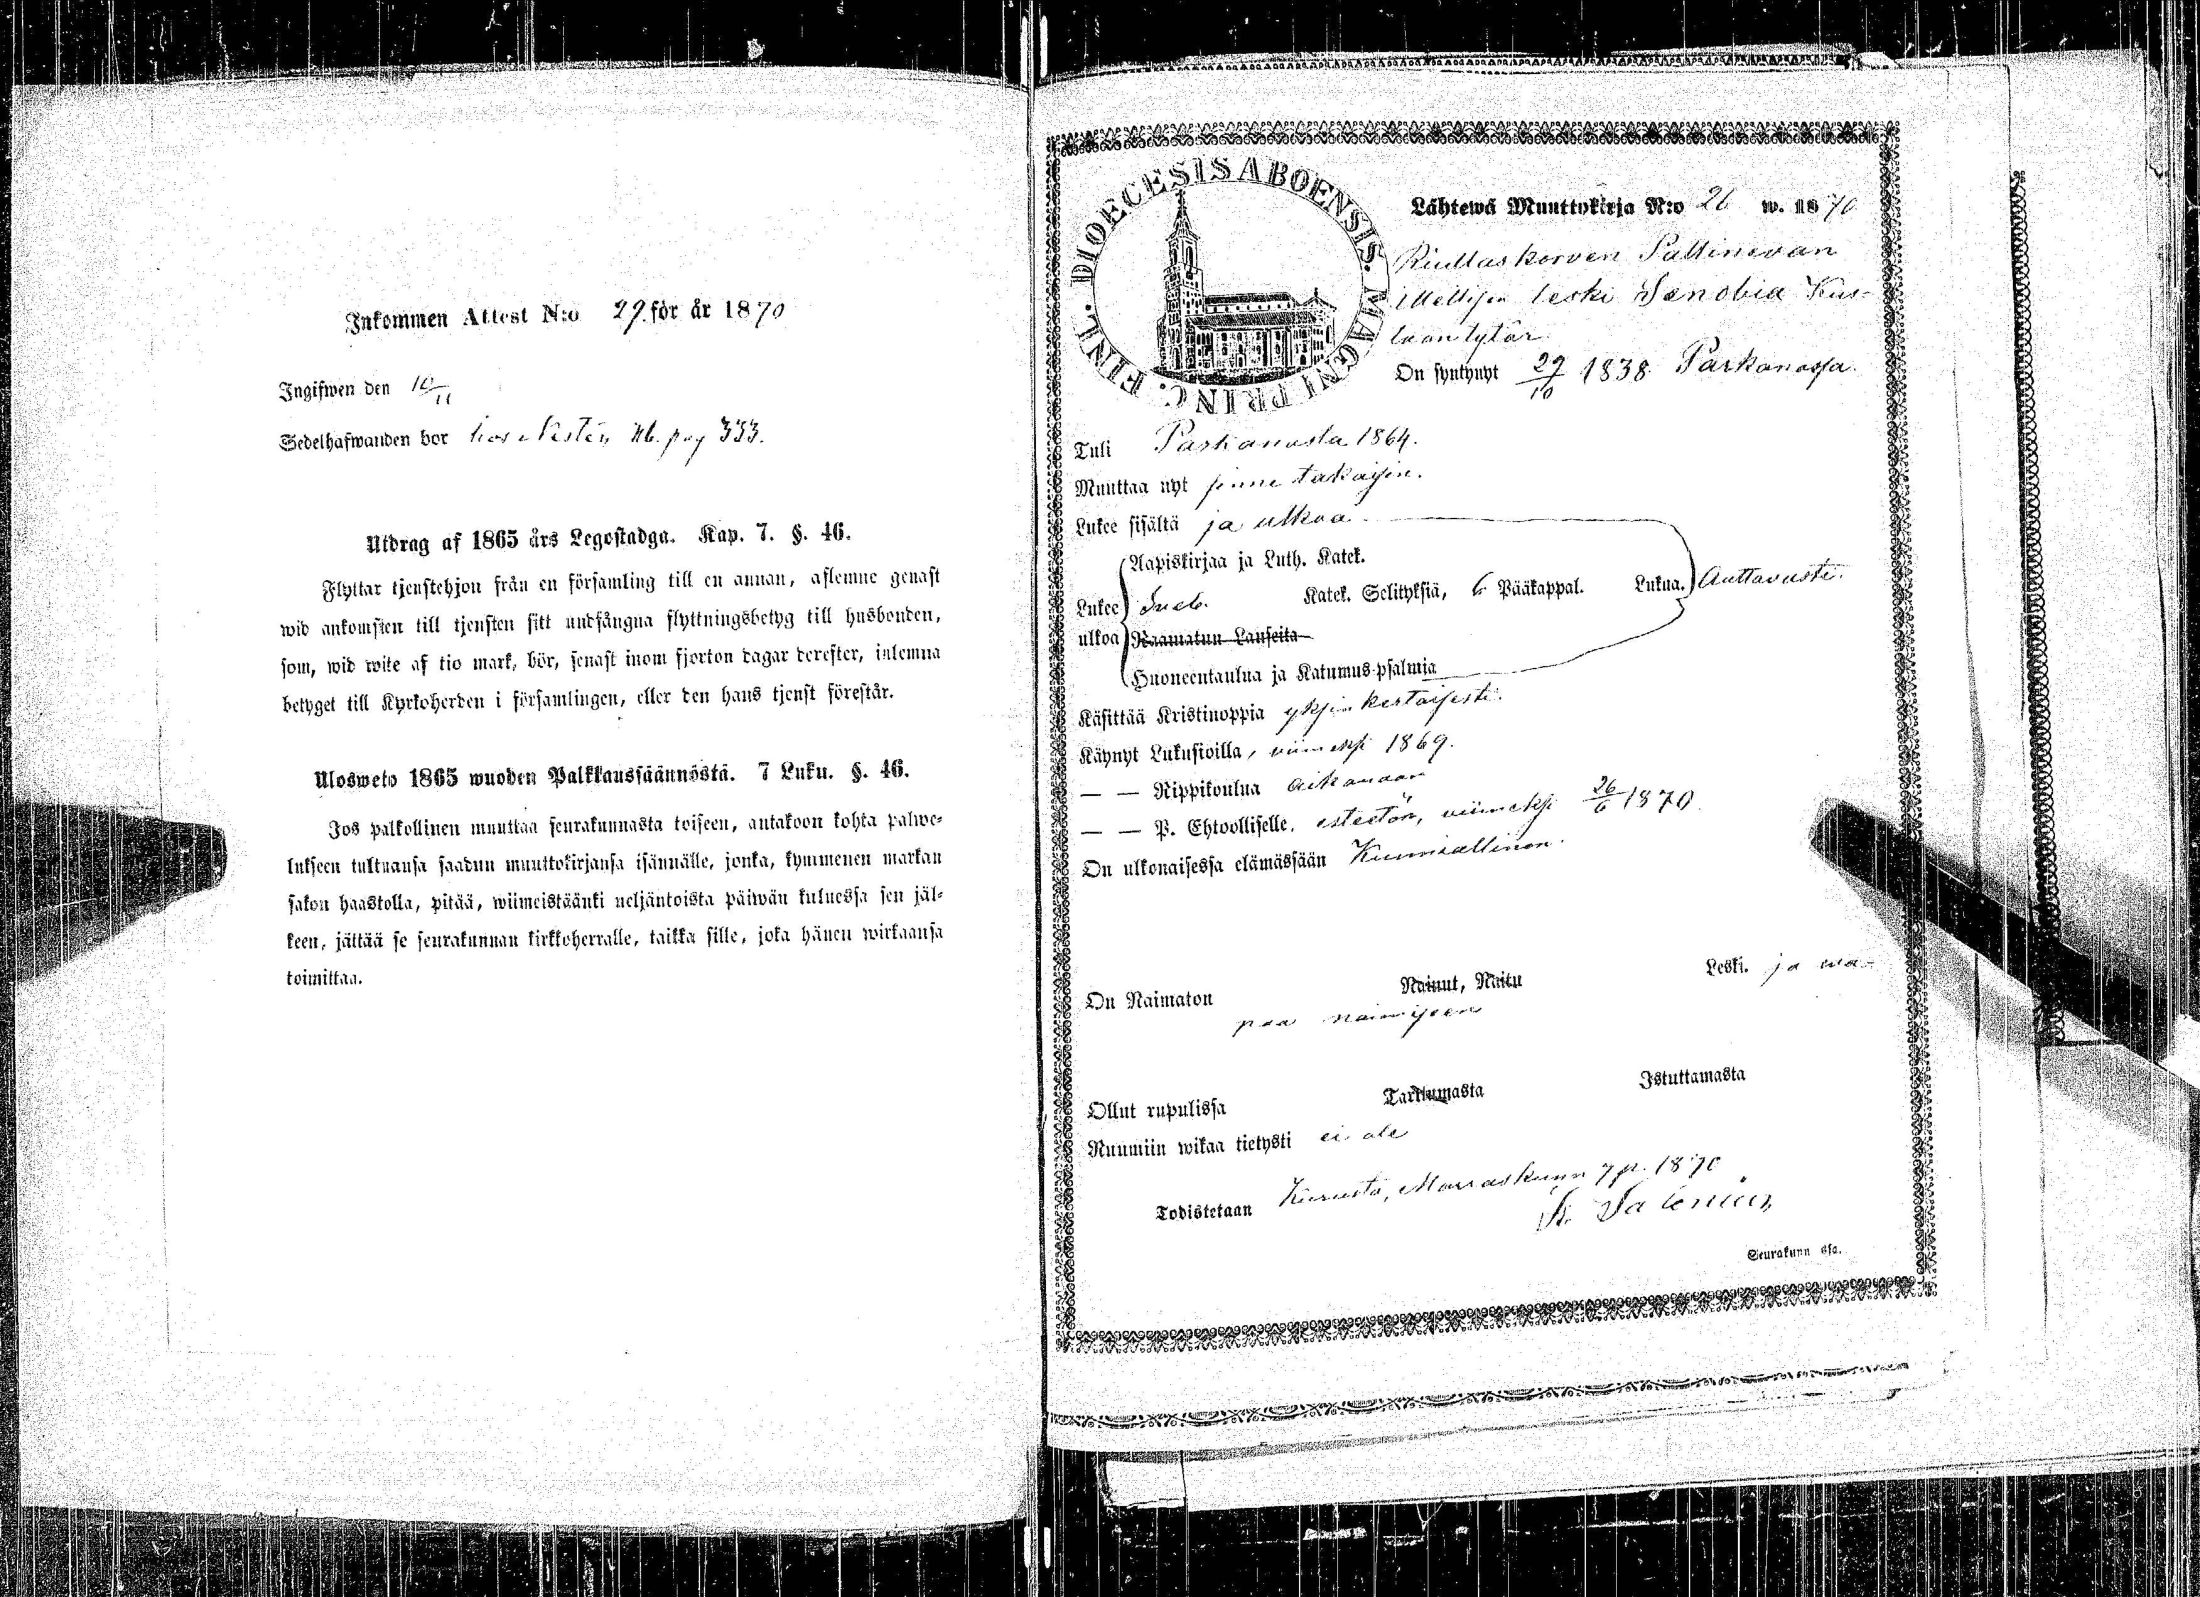 Inkommen Attest N:o 29. för år 1870
Ingifwen den 10/11
Sedelhafwanden bor hos pag 333.
Utdrag af 1865 års Legostadga. Kap. 7. §. 46.
Flyttar tjenstehjon från en församling till en annan, aflemne genast
wid ankomsten till tjensten sitt undfångna flyttningsbetyg till husbonden,
som, wid wite af tio mark, bör, senast inom fjorton dagar derefter, inlemna
betyget till Kyrkoherden i församlingen, eller den hans tjenst förestår.
Ulosweto 1865 wuoden Palkkaussäännöstä. 7 Luku. §. 46.
Jos palkollinen muuttaa seurakunnasta toiseen, antakoon kohta palwe-
lukseen tultuansa saadun muuttokirjansa isännälle, jonka, kymmenen markan
sakon haastolla, pitää, wiimeistäänki neljäntoista päiwän kuluessa sen jäl-
keen, jättää se seurakunnan kirkkoherralle, taikka sille, joka hänen wirkaansa
toimittaa.
DIOECESIS ABOENSIS. MAGNI PRINC. FINL.
Lähtewä Muuttokirja N:o 26 w. 1870
leski Senobia Kus-
taantytär
On syntynyt 29/10 1838 Parkanossa.
Tuli Parkanosta 1864.
Muuttaa nyt sinne takaisin.
Lukee sisältä ja ulkoa
Aapiskirjaa ja Luth. Katek.
Lukee ulkoa Sueb. Katek. Selityksiä, 6 Pääkappal. Lukua. Auttavasti.
Raamatun Lauseita
Huoneentaulua ja Katumus-psalmia
Käsittää Kristinoppia yksinkertaisesti.
Käynyt Lukusioilla, viimeksi 1869.
— — Rippikoulua aikanaan
— — P. Ehtoolliselle, esteetön, viimeksi 26/6 1870.
On ulkonaisessa elämässään Kunniallinen.
On Naimaton Nainut, Naitu Leski. ja wa-
paa naimiseen
Ollut rupulissa Tarttumasta Istuttamasta
Ruumiin wikaa tietysti ei ole
Todistetaan Kurusta, Marraskuun 7 p. 1870
Seurakunn ssa.